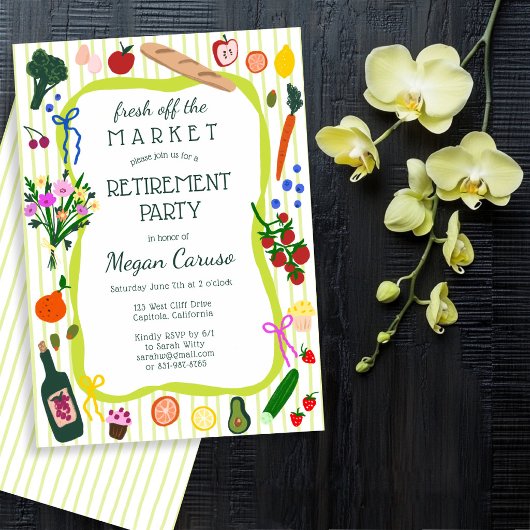 fresh off the
MARKET
please join us for a
RETIREMENT
PARTY
in honor of
Megan Caruso
Saturday June 7th at 2 o'clock
123 West Cliff Drive
Capitola, California
Kindly RSVP by 6/1
to Sarah Witty
sarahw@gmail.com
or 831-987-8765